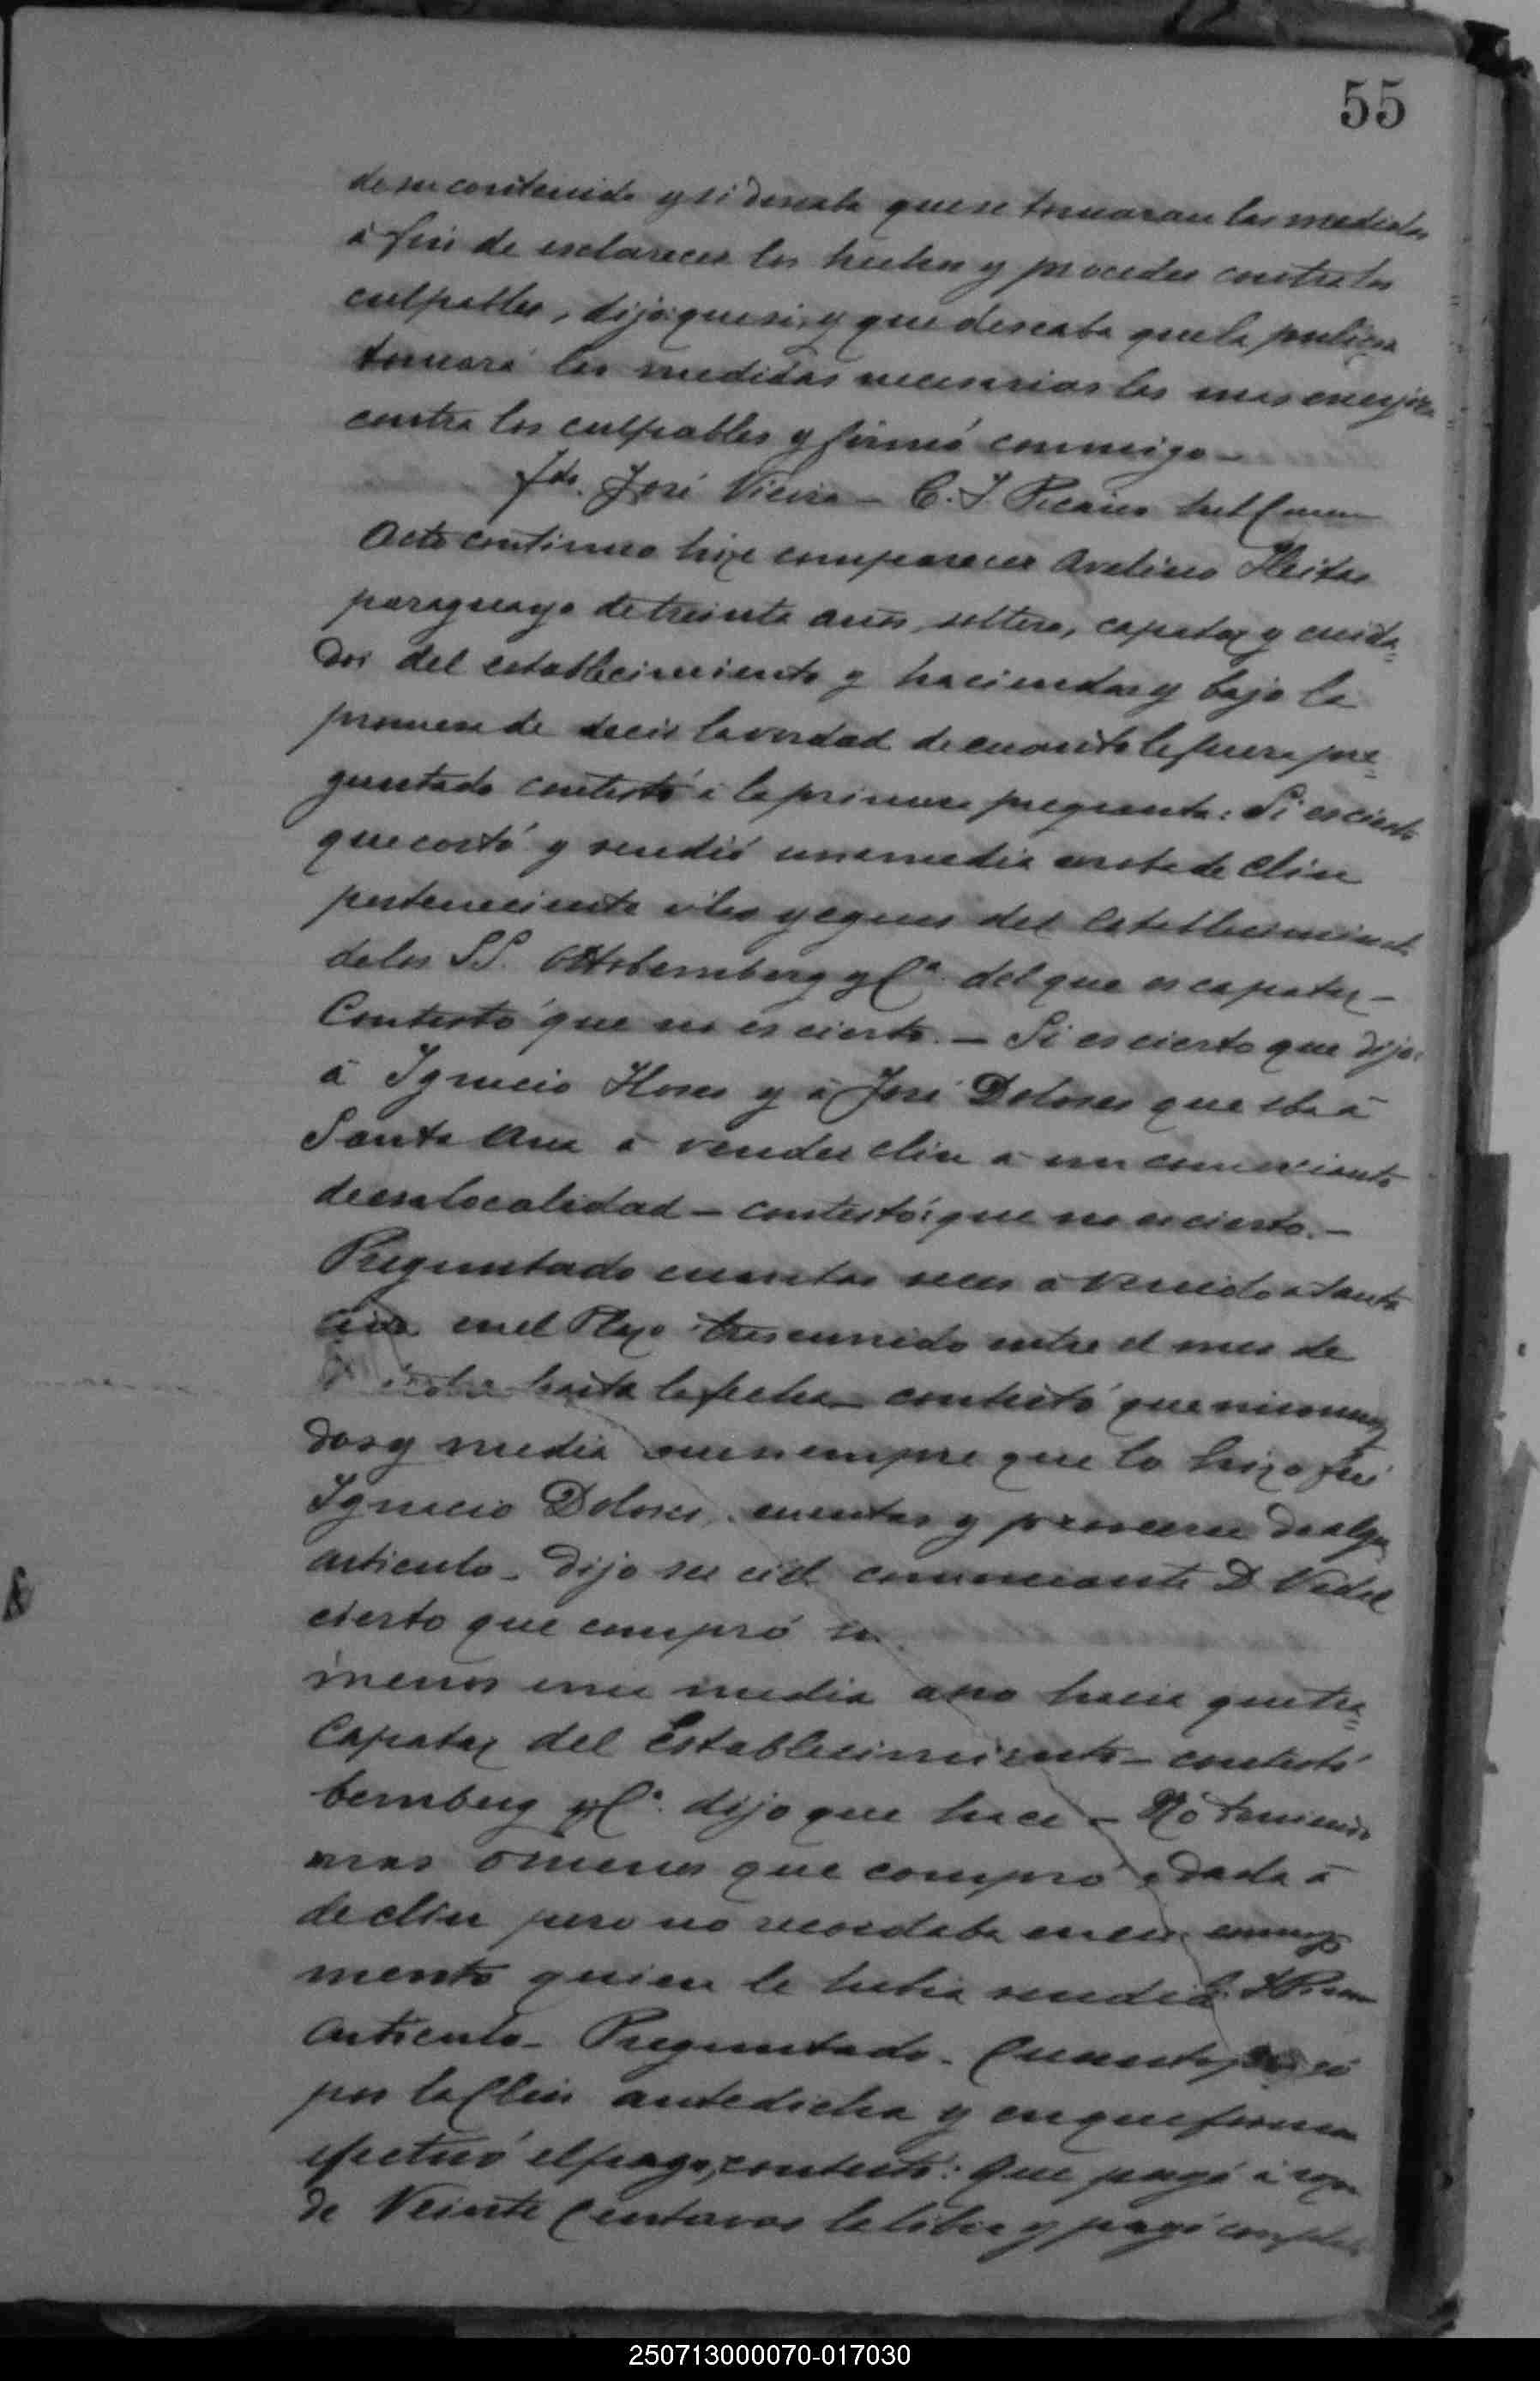 55
de su contenido y si deseaba que se tomaran las medidas
á fin de esclarecer los hechos y proceder contra los
culpables, dijo: que si, y que deseaba que la policia
tomará las medidas necesarias las mas energicas
contra los culpables y firmó conmigo —
fdo. José Vieira — C. J.
Acto continuo hize comparecer Avelino Fleitas
paraguayo de treinta años, soltero, capataz y cuida=
dor del establecimiento y haciendas y bajo la
promesa de decir la verdad de cuanto le fuera pre=
guntado contestó á la primera pregunta: Si es cierto
que cortó y vendió una media aroba de clin
perteneciente á las yeguas del establecimiento
de los SS. Ottobemberg y Cª. del que es capataz —
Contestó que no es cierto. — Si es cierto que dijo
á Ignacio Flores y á José Dolores que iba á
Santa Ana á vender clin a un comerciante
de esa localidad — contestó: que no es cierto. —
Preguntado cuantas veces á venido a Santa
Ana en el Plazo trascurrido entre el mes de
hasta la fecha — contestó que
dos y media siempre que lo hizo fué
Ignacio Dolores, cuentas y de algun
articulo — Dijo ser comerciante D. Vidal
cierto que compró
menos una media hacia
Capataz del Establecimiento — contestó
bemberg y Cª. dijo que hace — No teniendo
mas ó menos que compró dada á
de clin pero no recordaba en
mento quien le habia vendido
articulo — Preguntado — Cuanto pagó
por la Clin antedicha y en que forma
efectuó el pago, contestó: Que pagó á razon
de Veinte Centavos la libra y pagó
250713000070-017030